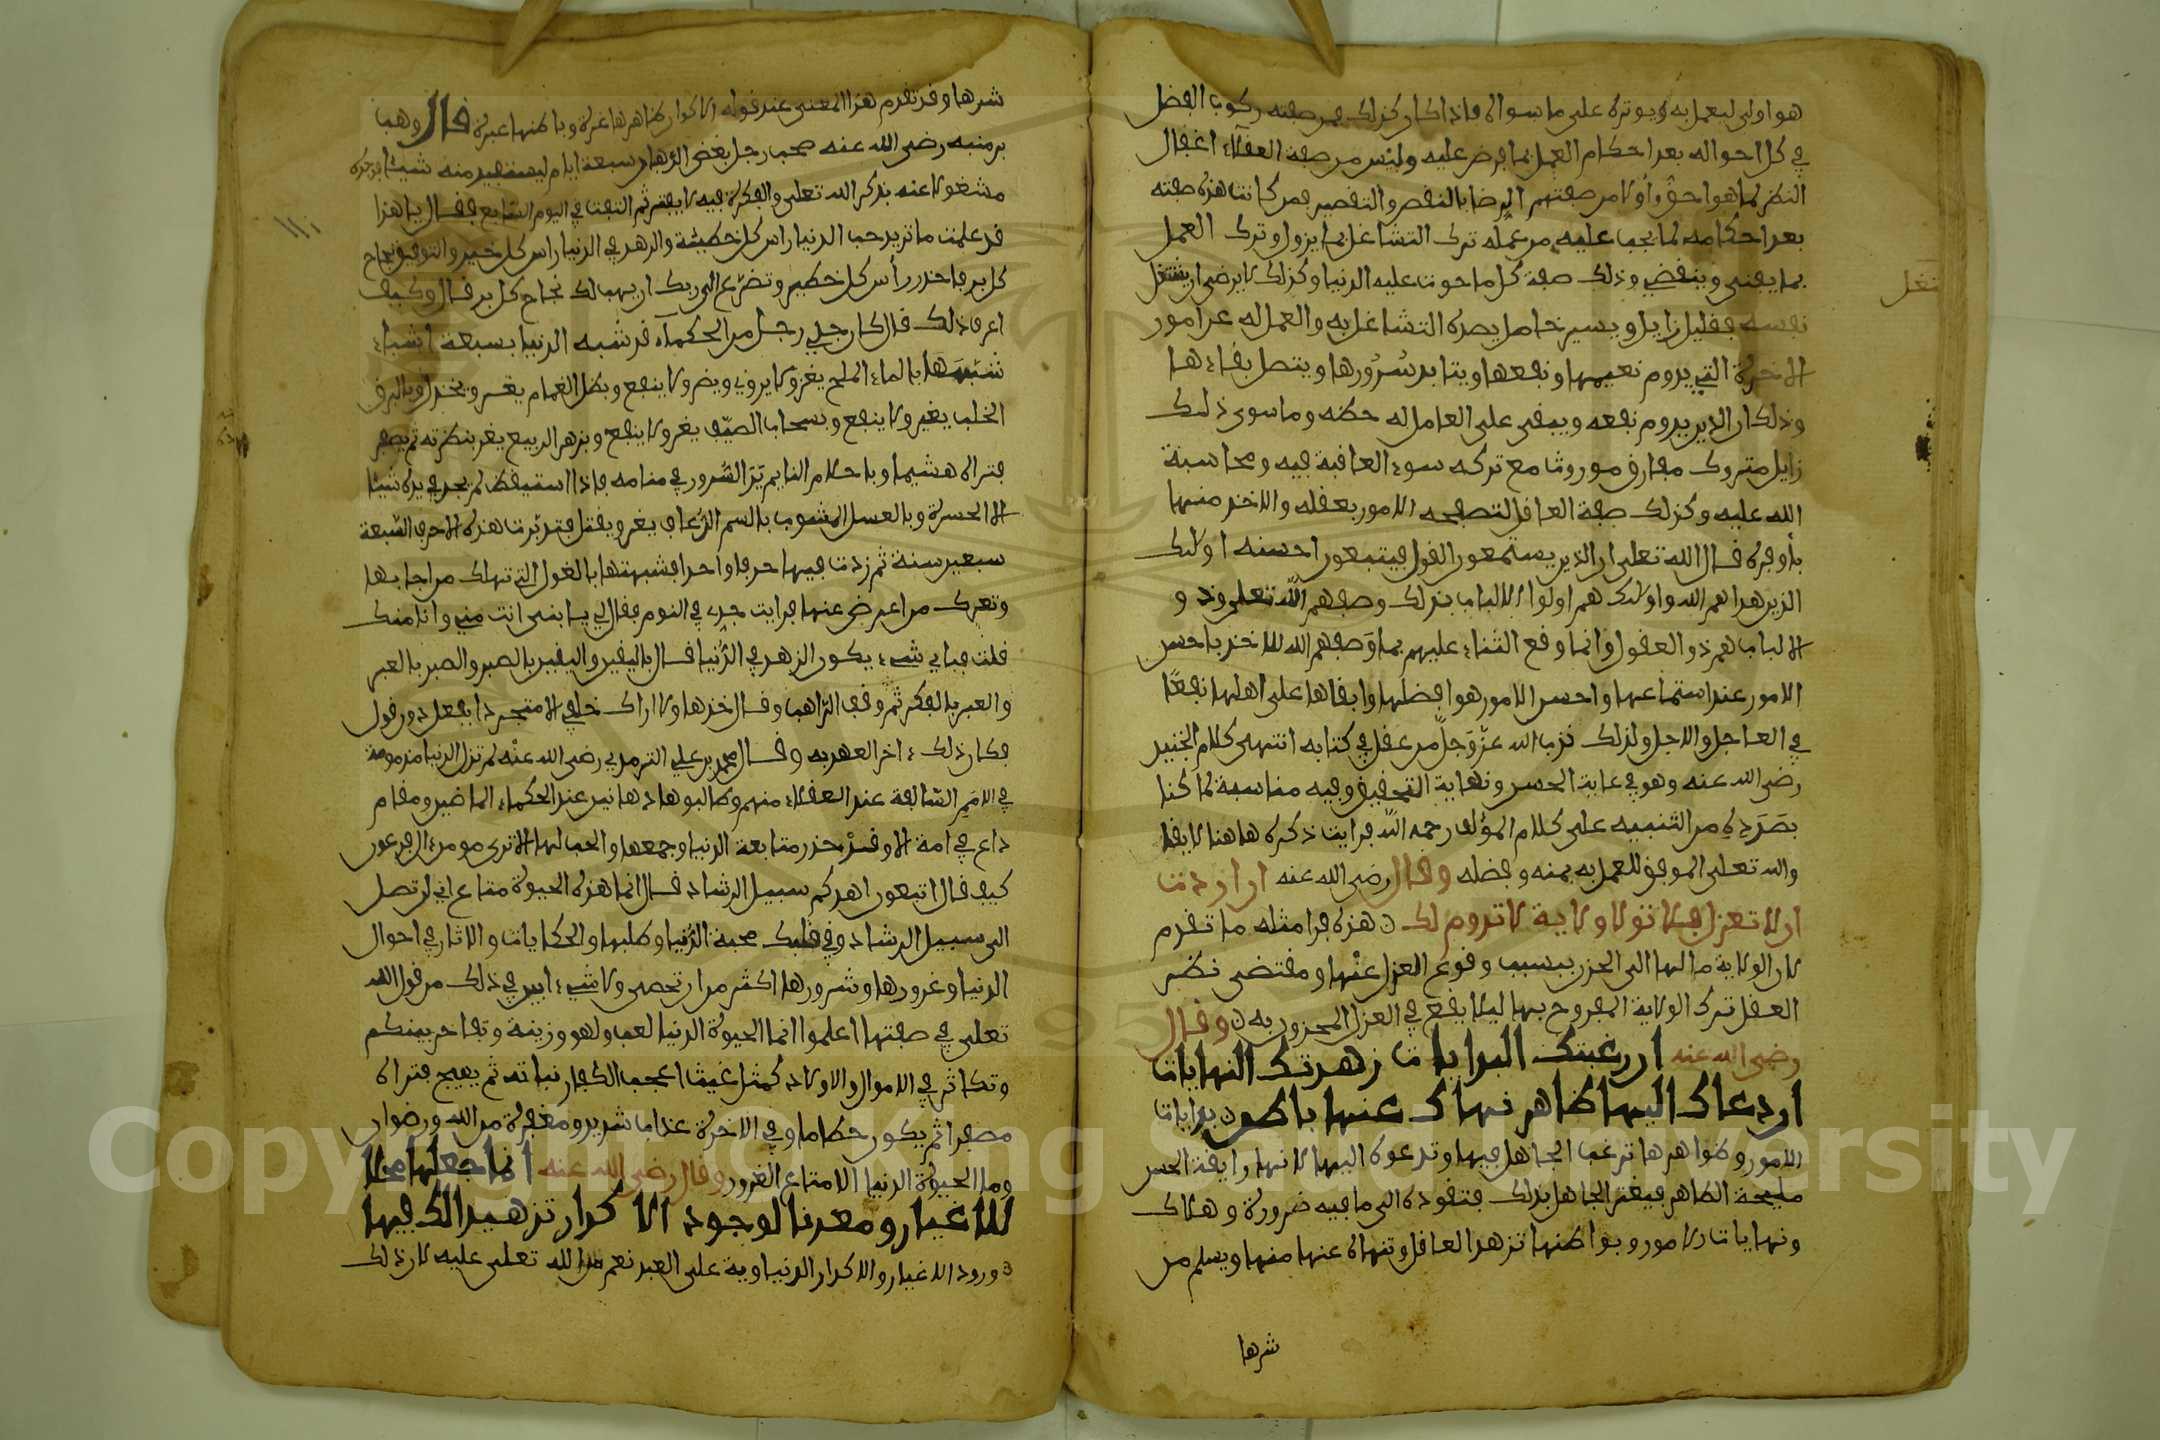 هو اولى ليعمل به ويوثره على ما سواه فاذا كان كذلك فمن صفته ركوب الفضل
في كل احواله بعد احكام العمل بما فرض عليه وليس من صفة العقلاء اغفال
النظر لما هو احق واولا من صفتهم الرضا بالنقص والتقصير فمن كانت هذه صفته
بعد احكامه لما يجب عليه من عمله ترك التشاغل بما يزول وترك العمل
بما يفنى وينقضي وذلك صفة كل ما حوت عليه الدنيا وكذلك لا يرضى ان يشتغل
نفسه بقليل زايل ويسير حايل يصده التشاغل به والعمل له عن امور
الاخرة التي يدوم نعيمها ونفعها ويتابد سرورها ويتصل بقاءها
وذلك ان الذي يدوم نفعه ويبقى على العامل له حظه وما سوى ذلك
زايل متروك مفارق موروث يخاف مع تركه سوء العاقبة فيه ومحاسبة
الله عليه وكذلك صفة العاقل لتصفحه الامور بعقله والاخذ منها
بأوفره قال الله تعلى الذين يستمعون القول فيتبعون احسنه اولائك
الذين هداهم الله واولائك هم اولوا الالباب بذلك وصفهم الله تعلى وذو
الالباب هم ذو العقول وانما وقع الثناء عليهم بما وصفهم الله للاخذ باحسن
الامور عند استماعها واحسن الامور هو افضلها وابقاها على اهلها نفعا
في العاجل والاجل ولذلك ندب الله عز وجل من عقل في كتابه انتهى كلام الجنيد
رضى الله عنه وهو في غاية الحسن ونهاية التحقيق وفيه مناسبة لما كنا
بصدده من التنبيه على كلام المؤلف رحمه الله فرايت ذكره هاهنا لايقا
والله تعلى الموفق للعمل به بمنه وفضله وقال رضى الله عنه ان اردت
ان لا تعزل فلا تتول ولاية لا تدوم لك هذه من امثله ما تقدم
لان الولاية مالها الى الحزن بسبب وقوع العزل عنها ومقتضى نظر
العقل ترك الولاية المفروح بها ليلا يقع في العزل المحزون به وقال
رضى الله عنه ان رغبتك البدايات زهدتك النهايات
ان دعاك اليها ظاهر نهاك عنها باطن بدايات
الامور وظواهرها ترغب الجاهل فيها وتدعوه اليها لانها رايقة الحسن
مليحة الظاهر فيغتر الجاهل بذلك فتقوده الى ما فيه ضرره وهلاك
ونهايات الامور وبواطنها تزهد العاقل وتنهاه عنها منها ويسلم من
شرها
تغل
شرها وقد تقدم هذا المعنى عند قوله الاكوان ظاهرها غرة وباطنها عبرة قال وهب
بن منبه رضى الله عنه صحب رجل بعض الرهبان سبعة ايام ليستفيد منه شيئا فوجده
مشغولا عنه بذكر الله تعلى والفكرة فيه لا يفتر ثم التفت في اليوم السابع فقال يا هذا
قد علمت ما تريد حب الدنيا راس كل خطيئة والزهد في الدنيا راس كل خير والتوفيق نجاح
كل بر فاحذر رأس كل خطيئة وتضرع الى ربك ان يهب لك نجاح كل بر قال وكيف
اعرف ذلك قال كان جدي رجل من الحكماء قد شبه الدنيا بسبعة اشياء
شبهها بالماء الملح يغر ولا يروي ويضر ولا ينفع وبظل الغمام يغر ويخذل وبالبرق
الخلب يغر ولا ينفع وبسحاب الصيف يغر ولا ينفع وبزهر الربيع يغر بنظرته ثم يصفر
فتراه هشيما وباحلام النايم يرى السرور في منامه فاذا استيقظ لم يجد في يده شيئا
الا الحسرة وبالعسل المشوب بالسم الزعاف يغر ويقتل فتدبرت هذه الاحرف السبعة
سبعين سنة ثم زدت فيها حرفا واحدا فشبهتها بالغول التي تهلك من اجابها
وتترك من اعرض عنها فرايت جدي في النوم فقال لي يا بني انت مني وانا منك
قلت فباي شيء يكون الزهد في الدنيا قال باليقين واليقين بالصبر والصبر بالعبر
والعبر بالفكر ثم وقف الراهب وقال خذها ولا اراك خلفي الا متجردا بفعل دون قول
فكان ذلك اخر العهد به وقال محمد بن علي الترمذي رضى الله عنه لم تزل الدنيا مذمومة
في الامم السالفة عند العقلاء منهم وطالبوها مهانين عند الحكماء الماضين وما قام
داع في امة الا وقد حذر متابعة الدنيا وجمعها والحب لها الا ترى مومن ءال فرعون
كيف قال اتبعون اهدكم سبيل الرشاد قال انما هذه الحيوة متاع اي لن تصل
الى سبيل الرشاد وفي قلبك محبة الدنيا وطلبها والحكايات والاثار في احوال
الدنيا وغرورها وشرورها اكثر من ان تحصى ولا شيء ابين في ذلك من قول الله
تعلى في صفتها اعلموا انما الحيوة الدنيا لعب ولهو وزينة وتفاخر بينكم
وتكاثر في الاموال والاولاد كمثل غيث اعجب الكفار نباته ثم يهيج فتراه
مصفرا ثم يكون حطاما وفي الاخرة عذاب شديد ومغفرة من الله ورضوان
وما الحيوة الدنيا الا متاع الغرور وقال رضى الله عنه انما جعلها محلا
للاغيار ومعدنا لوجود الاكدار تزهيدا لك فيها
ورود الاغيار والاكدار الدنياوية على العبد نعم من الله تعلى عليه لان ذلك